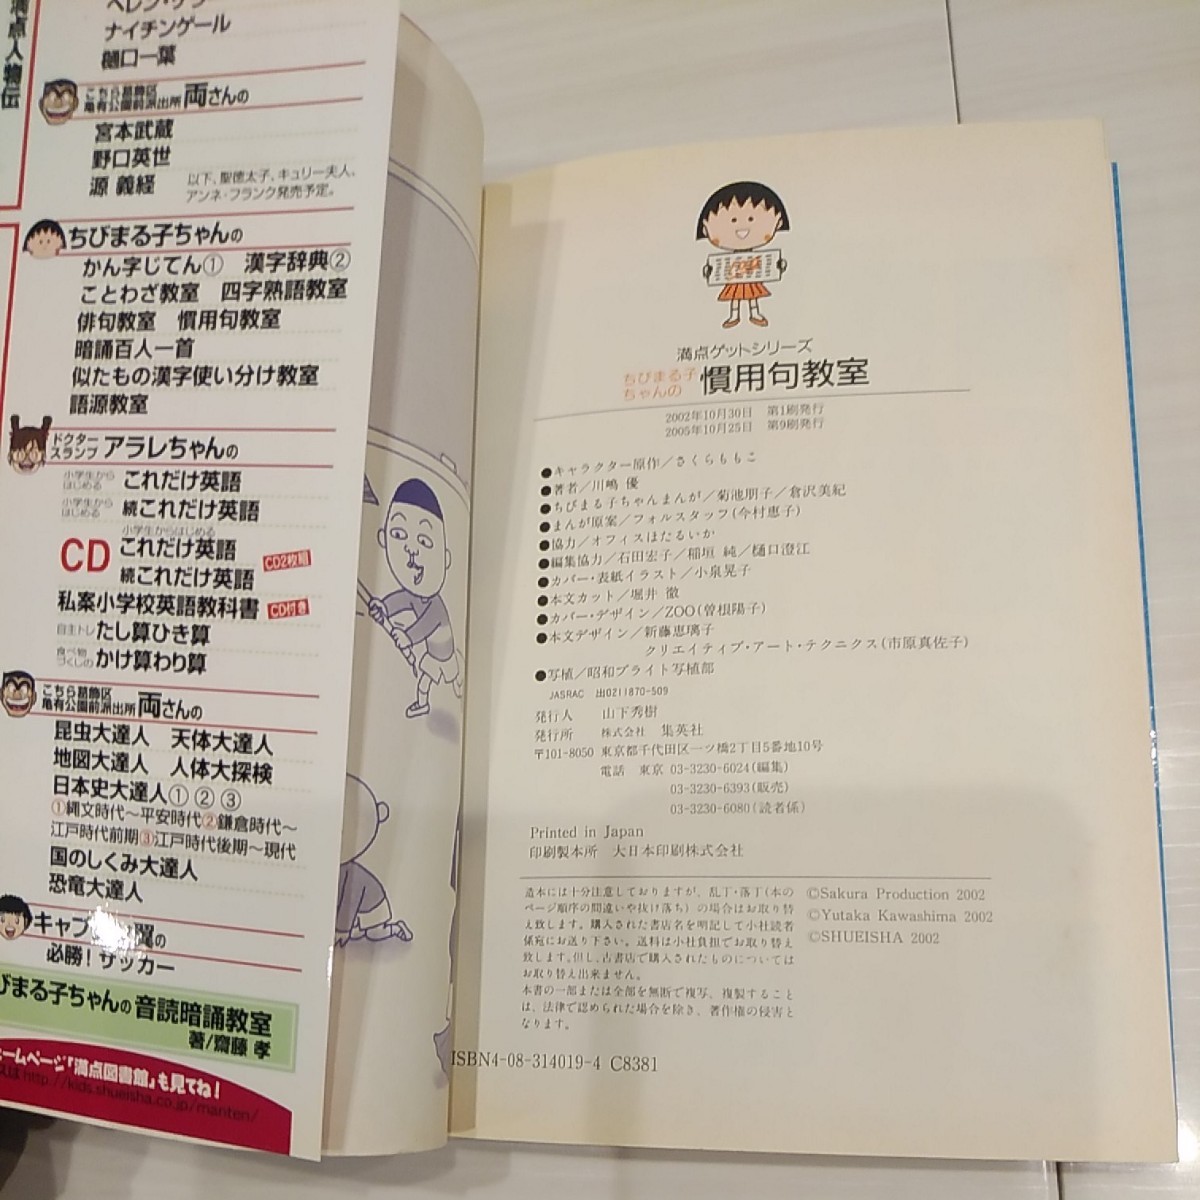 満点人物伝
ナイチンゲール
樋口一葉
こちら葛飾区
亀有公園前派出所 両さんの
宮本武蔵
野口英世
源 義経
以下、聖徳太子、キュリー夫人、
アンネ・フランク発売予定。
ちびまる子ちゃんの
かん字じてん① 漢字辞典②
ことわざ教室 四字熟語教室
俳句教室 慣用句教室
暗誦百人一首
似たもの漢字使い分け教室
語源教室
ドクター
スランプ アラレちゃんの
小学生から
はじめる これだけ英語
小学生から
はじめる 続これだけ英語
小学生からはじめる
CD これだけ英語
続これだけ英語 CD2枚組
私案小学校英語教科書 CD付き
自主トレ たし算ひき算
食べ物
づくしの かけ算わり算
こちら葛飾区
亀有公園前派出所 両さんの
昆虫大達人 天体大達人
地図大達人 人体大探検
日本史大達人① ② ③
①縄文時代〜平安時代②鎌倉時代〜
江戸時代前期③江戸時代後期〜現代
国のしくみ大達人
恐竜大達人
キャプ 翼の
必勝!サッカー
びまる子ちゃんの 音読暗誦教室
著/齋藤 孝
ホームページ「満点図書館」も見てね!
http://kids.shueisha.co.jp/manten/
満点ゲットシリーズ
ちびまる子
ちゃんの 慣用句教室
2002年10月30日 第1刷発行
2005年10月25日 第9刷発行
●キャラクター原作/さくらももこ
●著者/川嶋 優
●ちびまる子ちゃんまんが/菊池朋子/倉沢美紀
●まんが原案/フォルスタッフ(今村恵子)
●協力/オフィスほたるいか
●編集協力/石田宏子/稲垣 純/樋口澄江
●カバー・表紙イラスト/小泉晃子
●本文カット/堀井 徹
●カバー・デザイン/ZOO(曽根陽子)
●本文デザイン/新藤恵璃子
クリエイティブ・アート・テクニクス(市原真佐子)
●写植/昭和ブライト写植部
JASRAC 出0211870-509
発行人 山下秀樹
発行所 株式会社 集英社
〒101-8050 東京都千代田区一ツ橋2丁目5番地10号
電話 東京 03-3230-6024(編集)
03-3230-6393(販売)
03-3230-6080(読者係)
Printed in Japan
印刷製本所 大日本印刷株式会社
造本には十分注意しておりますが、乱丁・落丁(本の
ページ順序の間違いや抜け落ち)の場合はお取り替
え致します。購入された書店名を明記して小社読者
係宛にお送り下さい。送料は小社負担でお取り替え
致します。但し、古書店で購入されたものについては
お取り替え出来ません。
本書の一部または全部を無断で複写、複製すること
は、法律で認められた場合を除き、著作権の侵害と
なります。
©Sakura Production 2002
©Yutaka Kawashima 2002
©SHUEISHA 2002
ISBN4-08-314019-4 C8381